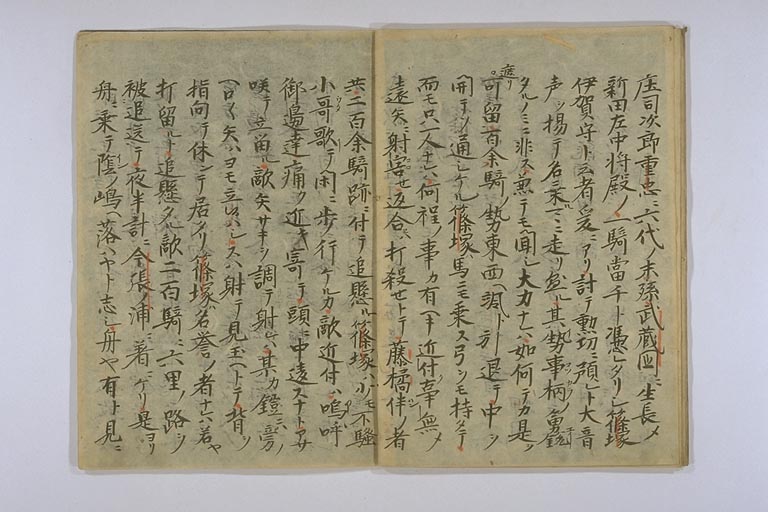 庄司次郎重忠ニ六代ノ末孫武蔵国ニ生長メ
新田左中将殿ノ一騎當千ト憑レタリシ篠塚
伊賀守ト云者爰ニアリ討テ勲功ニ預レト大音
声ヲ揚テ名乗テ走リ懸ル其勢事柄ノ勇鋭
タルノミニ非ス兼テモ聞シ大力ナレハ如何テカ是ヲ
遮リ可留百余騎ノ勢東西ヘ颯ト引退テ中ヲ
開テソ通シケル篠塚馬ニモ乗ス弓ヲモ持タテ
而モ只一人ナレハ何程ノ事カ有ヘキ近付事無メ
遠矢ニ射害セ返合ハ打殺セトテ藤橘伴ノ者
共二百余騎跡ニ付テ追懸ル篠塚小モ不騒
小哥歌テ閑ニ歩行ケルカ敵近付ハ嗚呼
御邊達痛ク近キ寄テ頭ニ中違スナトアサ
咲テ立留ル敵矢サキヲ調テ射レハ某カ鎧ニハ旁
ヘロ〱矢ハヨモ立シスハ射テ見玉ヘトテ背ヲ
指向テ休ンテ居タリ篠塚名誉ノ者ナレハ若ヤ
打留ルト追懸タル敵二百騎ニ六里ノ路ヲ
被追送テ夜半計ニ今張ノ浦ニ着ニケリ是ヨリ
舟ニ乗テ隠ノ嶋ヘ落ハヤト志シ舟ヤ有ト見ニ